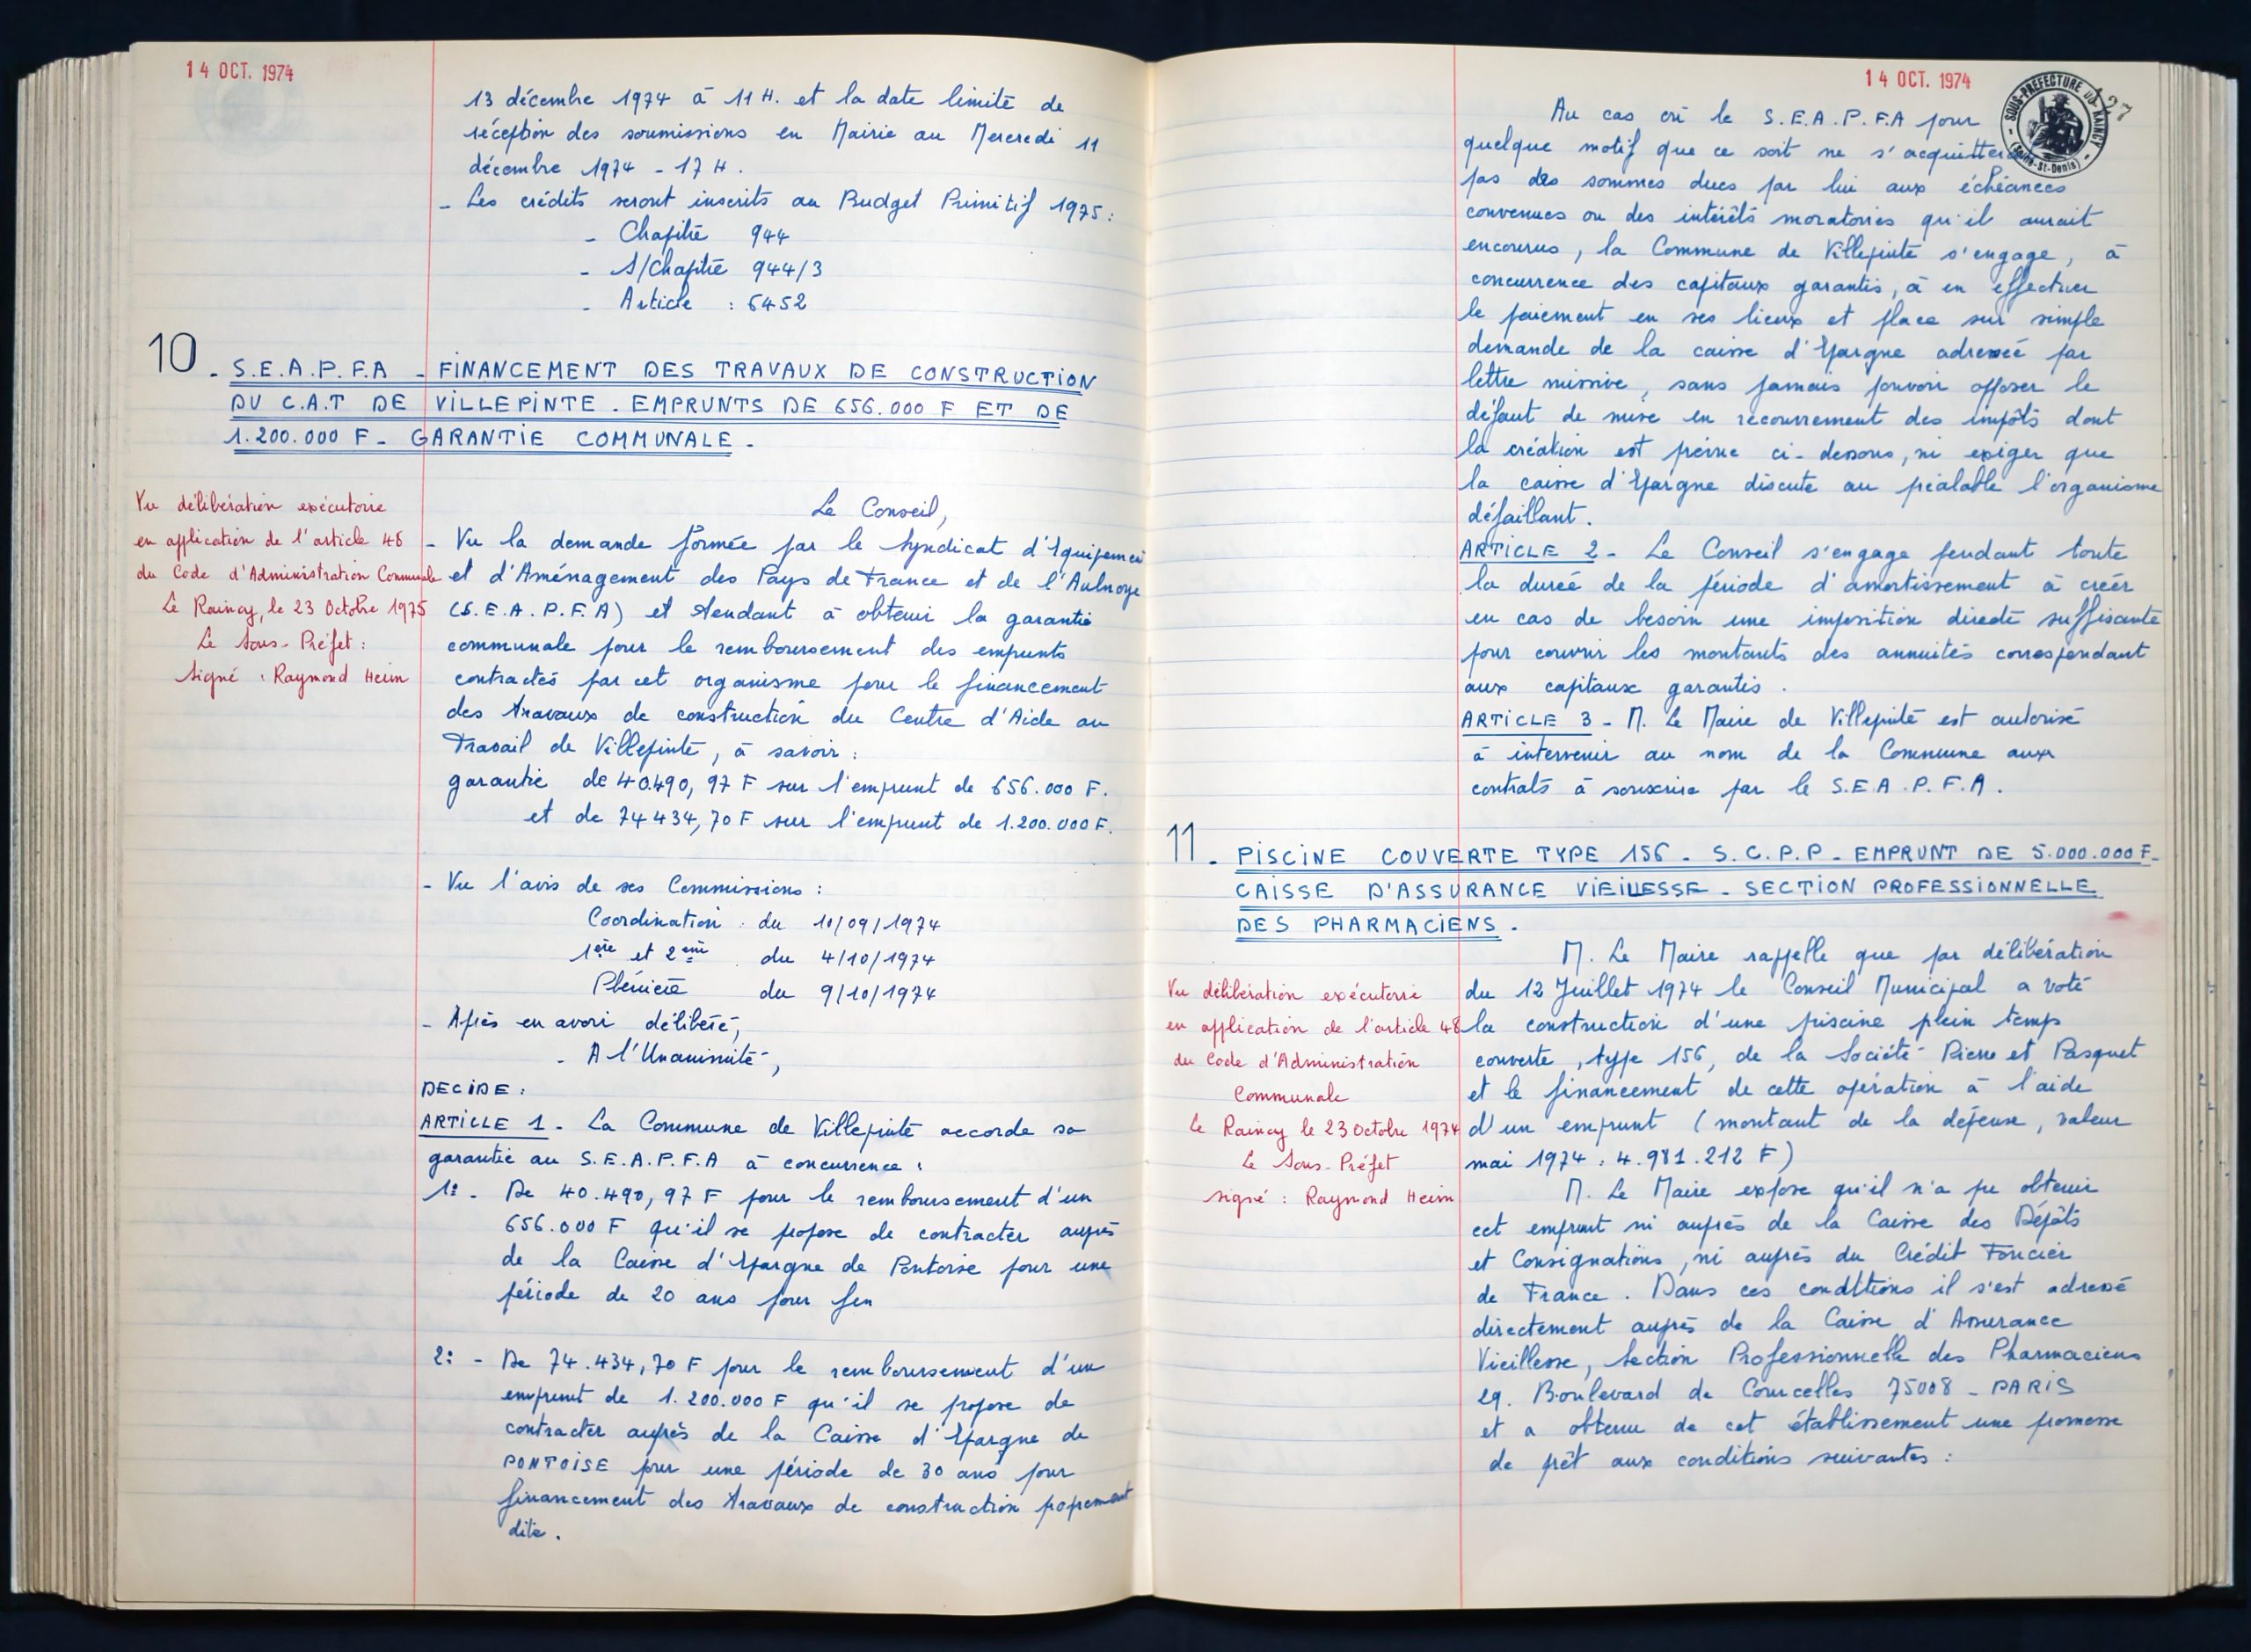 14 OCT. 1974
13 décembre 1974 à 11 H. et la date limite de
réception des soumissions en Mairie au Mercredi 11
décembre 1974 - 17 H.
- Les crédits seront inscrits au Budget Primitif 1975 :
- Chapitre 944
- S/Chapitre 944/3
- Article : 6452
10 - S.E.A.P.F.A - FINANCEMENT DES TRAVAUX DE CONSTRUCTION
DU C.A.T DE VILLEPINTE. EMPRUNTS DE 656.000 F ET DE
1.200.000 F - GARANTIE COMMUNALE -
Vu délibération exécutoire
en application de l'article 48
du Code d'Administration Communale
Le Raincy, le 23 Octobre 1975
Le Sous-Préfet :
Signé : Raymond Heim
Le Conseil,
- Vu la demande formée par le Syndicat d'Equipement
et d'Aménagement des Pays de France et de l'Aulnoye
(S.E.A.P.F.A) et tendant à obtenir la garantie
communale pour le remboursement des emprunts
contractés par cet organisme pour le financement
des travaux de construction du Centre d'Aide au
Travail de Villepinte, à savoir :
garantie de 40.490,97 F sur l'emprunt de 656.000 F.
et de 74434,70 F sur l'emprunt de 1.200.000 F.
- Vu l'avis de ses Commissions :
Coordination : du 10/09/1974
1ère et 2ème du 4/10/1974
Plénière du 9/10/1974
- Après en avoir délibéré,
- A l'Unanimité,
DECIDE :
ARTICLE 1 - La Commune de Villepinte accorde sa
garantie au S.E.A.P.F.A à concurrence :
1: - De 40.490,97 F pour le remboursement d'un
656.000 F qu'il se propose de contracter auprès
de la Caisse d'Epargne de Pontoise pour une
période de 20 ans pour
2: - De 74.434,70 F pour le remboursement d'un
emprunt de 1.200.000 F qu'il se propose de
contracter auprès de la Caisse d'Epargne de
PONTOISE pour une période de 30 ans pour
financement des travaux de construction proprement
dite.
14 OCT. 1974
SOUS-PREFECTURE DU RAINCY
(Seine-St-Denis)
Au cas où le S.E.A.P.F.A pour
quelque motif que ce soit ne s'acquitterait
pas des sommes dues par lui aux échéances
convenues ou des intérêts moratoires qu'il aurait
encourus, la Commune de Villepinte s'engage, à
concurrence des capitaux garantis, à en effectuer
le paiement en ses lieux et place sur simple
demande de la caisse d'Epargne adressée par
lettre missive, sans jamais pouvoir opposer le
défaut de mise en recouvrement des impôts dont
la création est prévue ci-dessous, ni exiger que
la caisse d'Epargne discute au préalable l'organisme
défaillant.
ARTICLE 2 - Le Conseil s'engage pendant toute
la durée de la période d'amortissement à créer
en cas de besoin une imposition directe suffisante
pour couvrir les montants des annuités correspondant
aux capitaux garantis.
ARTICLE 3 - M. Le Maire de Villepinte est autorisé
à intervenir au nom de la Commune aux
contrats à souscrire par le S.E.A.P.F.A.
11 - PISCINE COUVERTE TYPE 156 - S.C.P.P - EMPRUNT DE 5.000.000 F -
CAISSE D'ASSURANCE VIEILLESSE - SECTION PROFESSIONNELLE
DES PHARMACIENS.
Vu délibération exécutoire
en application de l'article 48
du Code d'Administration
Communale
Le Raincy le 23 Octobre 1974
Le Sous-Préfet
signé : Raymond Heim
M. Le Maire rappelle que par délibération
du 12 Juillet 1974 le Conseil Municipal a voté
la construction d'une piscine plein temps
couverte, type 156, de la Société Pierre et Pasquet
et le financement de cette opération à l'aide
d'un emprunt (montant de la dépense, valeur
mai 1974 : 4.981.212 F)
M. Le Maire expose qu'il n'a pu obtenir
cet emprunt ni auprès de la Caisse des Dépôts
et Consignations, ni auprès du Crédit Foncier
de France. Dans ces conditions il s'est adressé
directement auprès de la Caisse d'Assurance
Vieillesse, Section Professionnelle des Pharmaciens
29. Boulevard de Courcelles 75008 - PARIS
et a obtenu de cet établissement une promesse
de prêt aux conditions suivantes :